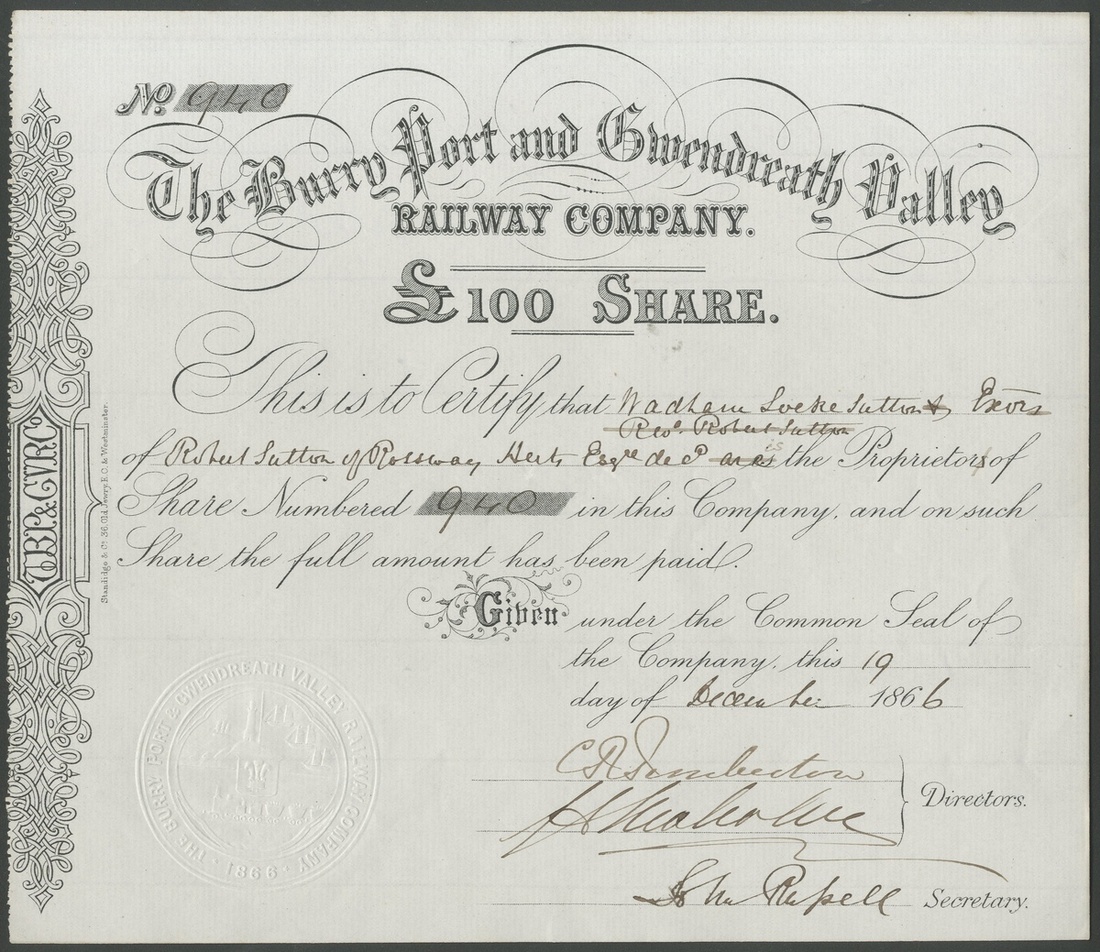 No. 940
The Burry Port and Gwendreath Valley
RAILWAY COMPANY.
£100 SHARE.
This is to Certify that Wadham Locke Sutton & Exors
Revd. Robert Sutton
of Robert Sutton of Rossway Herts Esqre decd are is the Proprietors of
Share Numbered 940 in this Company, and on such
Share the full amount has been paid.
Given under the Common Seal of
the Company, this 19
day of December 1866
Directors.
John Russell Secretary.
THE BURRY PORT & GWENDREATH VALLEY RAILWAY COMPANY
1866
TBP&GVRC
Standidge & Co. 36, Old Jewry E.C. & Westminster.